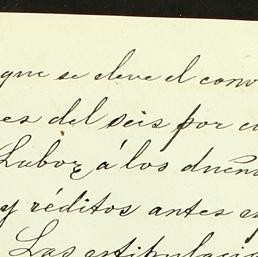 que se eleve el conv
es del seis por c
Lubox, á los dueñ
y réditos antes e
Las estipulacio